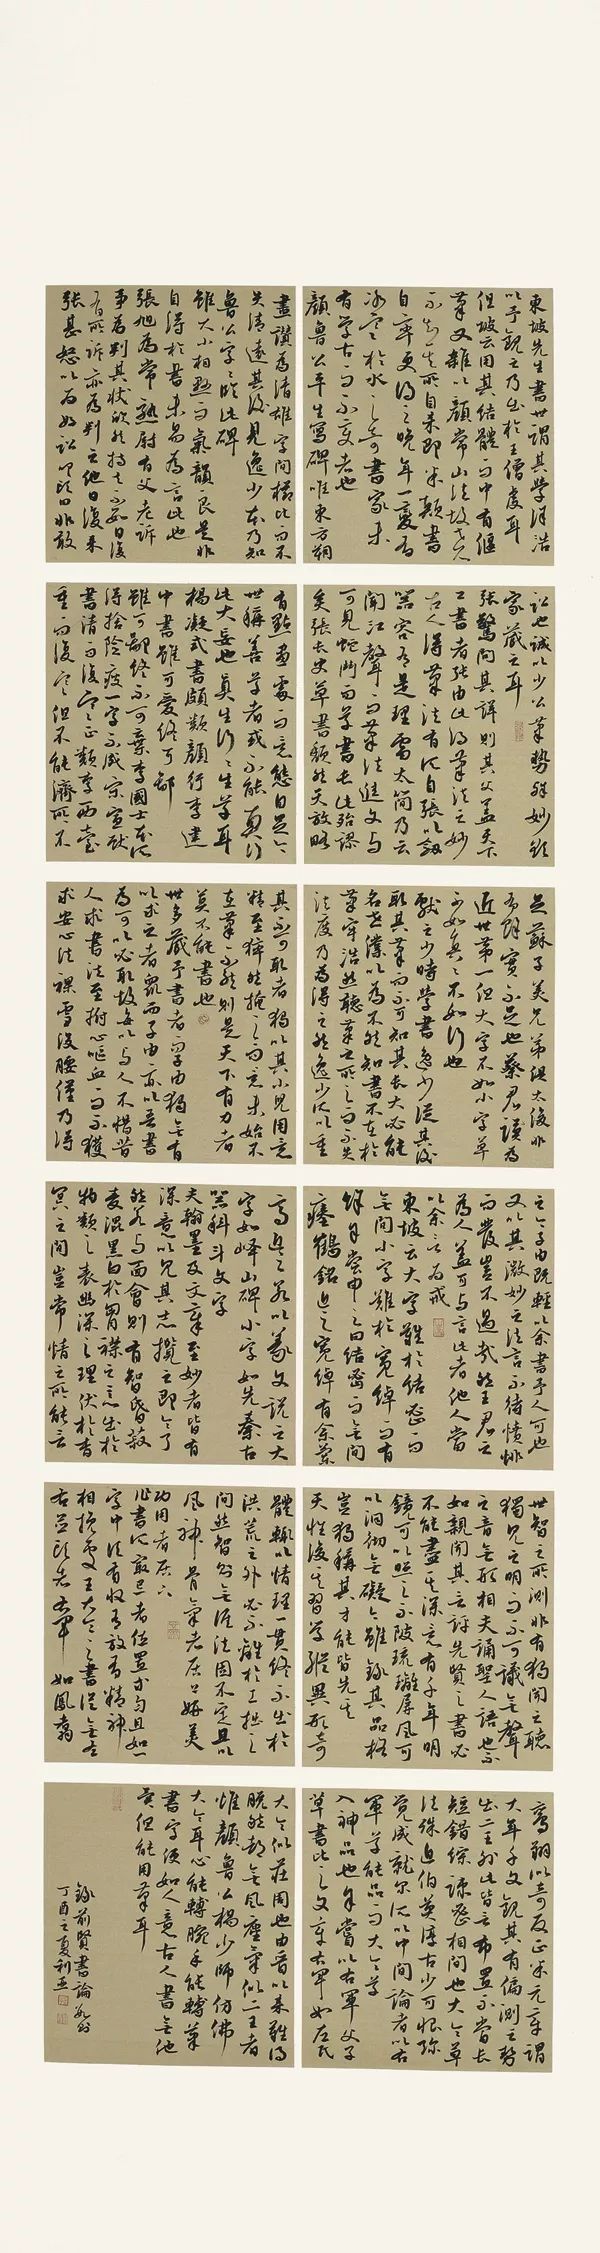 東坡先生書世謂其學徐浩
以予觀之乃出於王僧虔耳
但坡云用其結體而中有偃
筆又雜以顏常山法故世人
不知其所自来即米顛書
自率更得之晚年一變有
冰寒於水之奇書家未
有學古而不變者也
顏魯公平生寫碑唯東方朔
畫讚為清雄字間櫛比而不
失清遠其後見逸少本乃知
魯公字字臨此碑
雖大小相懸而氣韻良是非
自得於書未易為言此也
張旭為常熟尉有父老訴
事為判其狀欣然持去不數日復
有所訴亦為判之他日復来
張甚怒以為好訟叩頭曰非敢
訟也誠以少公筆勢殊妙欲
家藏之耳
張驚問其詳則其父蓋天下
工書者張由此得筆法之妙
古人得筆法有所自張以劍
器容有是理雷太簡乃云
聞江聲而筆法進文与
可見蛇鬥而草書長此殆謬
矣張長史草書頹然天放略
有點畫處而意態自足今
世稱善草者或不能真行
此大妄也真生行行生草耳
楊凝式書頗類顏行李建
中書雖可愛終可鄙
雖可鄙終不可棄李國士本無所
得捨險瘦一字不成宋宣獻
書清而復寒正類李西臺
重而復寒但不能濟所不
足蘇子美兄弟俱太俊非
有餘實不足也蔡君謨為
近世第一但大字不如小字草
不如真真不如行也
獻之少時學書逸少從其後
取其筆而不可知其長大必能
名世僕以為不然知書不在於
筆牢浩然聽筆之所之而不失
法度乃為得之然逸少所以重
其不可取者獨以其小兒用意
精至猝然掩之而意未始不
在筆不然則是天下有力者
莫不能書也
世多藏予書者而子由獨無有
以求之者眾而子由亦以吾書
為可以必取故每以与人不惜昔
人求書法至拊心嘔血而不獲
求安心法裸雪沒腰僅乃得
之今子由既輕以余書予人可也
又以其微妙之法言不待憤悱
而發豈不過哉然王君之
為人蓋可与言此者他人當
以余言為戒
東坡云大字難於結密而
無間小字難於寬綽而有
餘耳嘗申之曰結密而無間
瘞鶴銘近之寬綽有余蘭
亭近之若以篆文說之大
字如嶧山碑小字如先秦古
器科斗文字
夫翰墨及文章至妙者皆有
深意以見其志攬之即今了
然若与面會則有智昏菽
麥混黑白於胸襟之心出於
物類之表幽深之理伏於杳
冥之間豈常情之所能言
世智之所測非有獨聞之聽
獨見之明而不可議無聲
之音無形相夫誦聖人語也不
如親聞其言評先賢之書必
不能盡其深意有千年明
鏡可以照之不陂琉璃屏風可
以洞徹無礙今雖錄其品格
豈獨稱其才能皆先其
天性後其習學縱異形奇
體輒以情理一貫終不出於
洪荒之外必不離於工拙之
間然智則無涯法固不定且以
風神骨氣者居上妍美
功用者居下
作書所最忌者位置等勻且如一
字中須有收有放有精神
相挽處王大令之書從無左
右並頭者右軍如鳳翥
鸞翔似奇反正米元章謂
大年千文觀其有偏側之勢
出二王外此皆言布置不當長
短錯綜疎密相間也大令草
法殊迫伯英淳古少可恨弥
覺成就尔所以中間論者以右
軍草能品而大令草
入神品也余嘗以右軍父子
草書比之文章右軍如左氏
大令似莊周也由晉以来難得
脫然都無風塵氣似二王者
惟顏魯公楊少師仿佛
大令耳心能轉腕手能轉筆
書字便如人意古人書無他
異但能用筆耳
錄前賢書論數則
丁酉之夏利